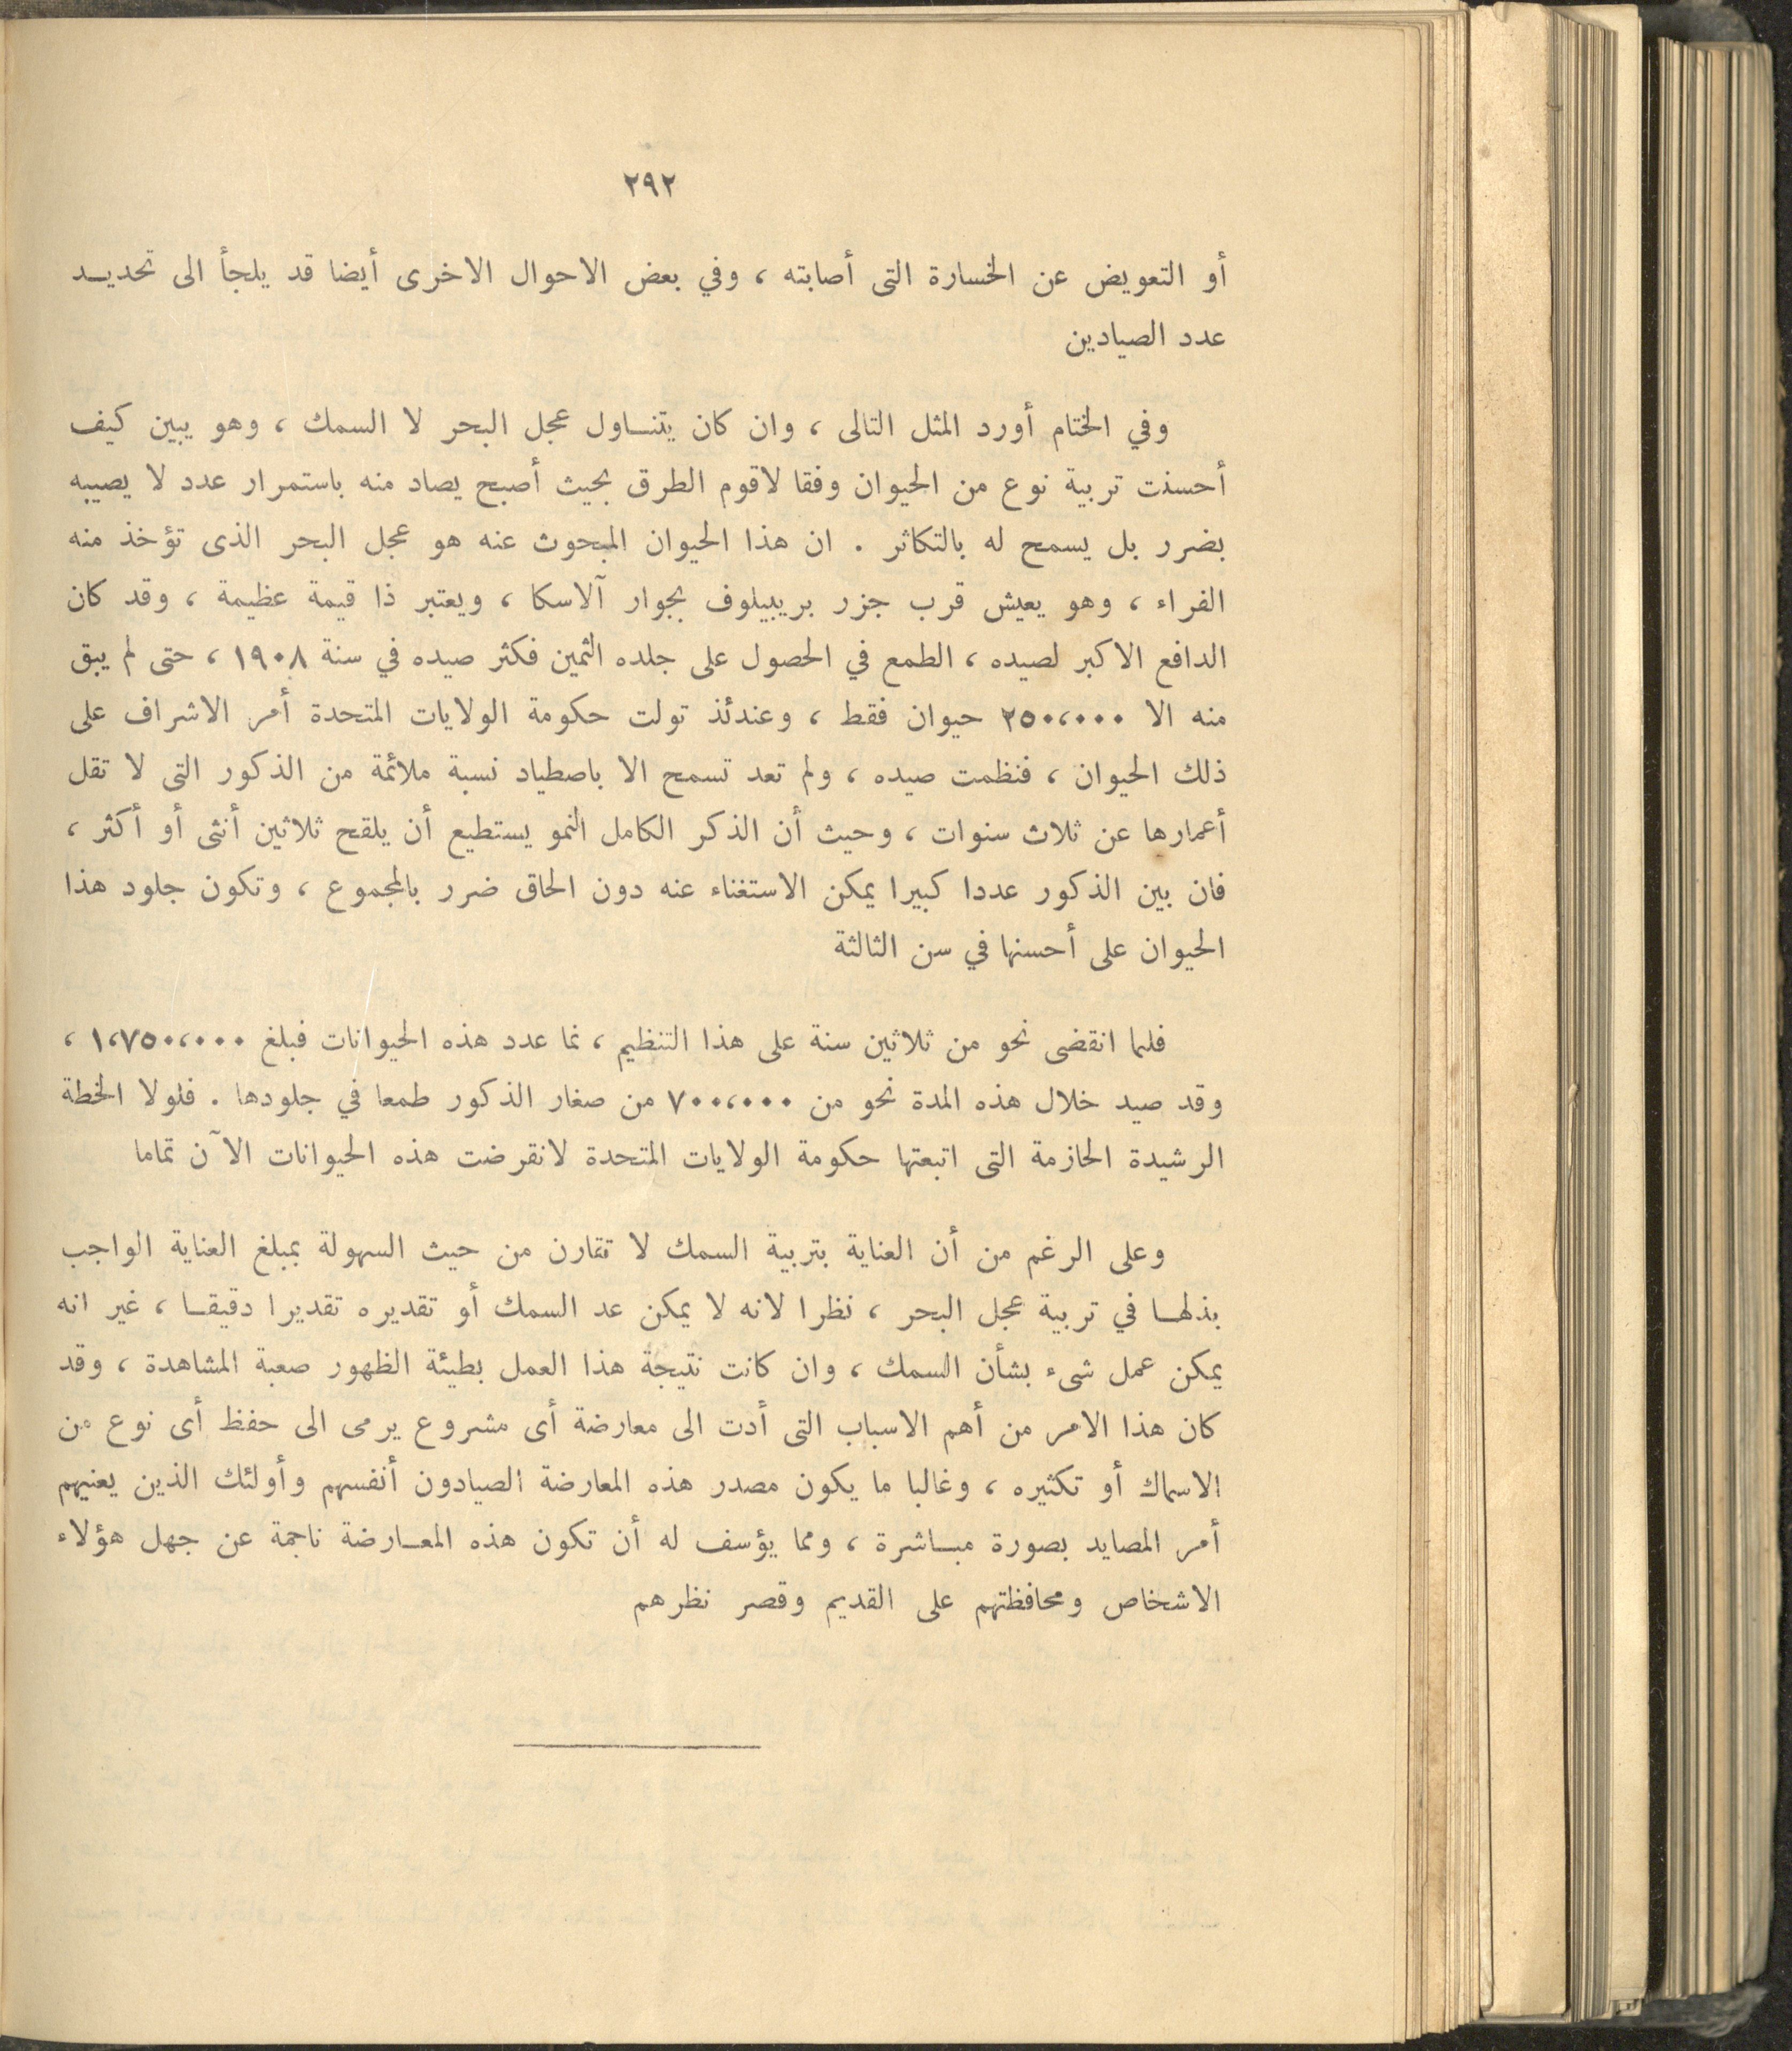 ٢٩٢
أو التعويض عن الخسارة التى أصابته ، وفي بعض الاحوال الاخرى أيضا قد يلجأ الى تحديد
عدد الصيادين
وفي الختام أورد المثل التالى ، وان كان يتناول عجل البحر لا السمك ، وهو يبين كيف
أحسنت تربية نوع من الحيوان وفقا لاقوم الطرق بحيث أصبح يصاد منه باستمرار عدد لا يصيبه
بضرر بل يسمح له بالتكاثر . ان هذا الحيوان المبحوث عنه هو عجل البحر الذى تؤخذ منه
الفراء ، وهو يعيش قرب جزر بريبيلوف بجوار آلاسكا ، ويعتبر ذا قيمة عظيمة ، وقد كان
الدافع الاكبر لصيده ، الطمع في الحصول على جلده الثمين فكثر صيده في سنة ١٩٠٨ ، حتى لم يبق
منه الا ٢٥٠،٠٠٠ حيوان فقط ، وعندئذ تولت حكومة الولايات المتحدة أمر الاشراف على
ذلك الحيوان ، فنظمت صيده ، ولم تعد تسمح الا باصطياد نسبة ملائمة من الذكور التى لا تقل
أعمارها عن ثلاث سنوات ، وحيث أن الذكر الكامل النمو يستطيع أن يلقح ثلاثين أنثى أو أكثر ،
فان بين الذكور عددا كبيرا يمكن الاستغناء عنه دون الحاق ضرر بالمجموع ، وتكون جلود هذا
الحيوان على أحسنها في سن الثالثة
فلما انقضى نحو من ثلاثين سنة على هذا التنظيم ، نما عدد هذه الحيوانات فبلغ ١،٧٥٠،٠٠٠ ،
وقد صيد خلال هذه المدة نحو من ٧٠٠،٠٠٠ من صغار الذكور طمعا في جلودها . فلولا الخطة
الرشيدة الحازمة التى اتبعتها حكومة الولايات المتحدة لانقرضت هذه الحيوانات الآن تماما
وعلى الرغم من أن العناية بتربية السمك لا تقارن من حيث السهولة بمبلغ العناية الواجب
بذلها في تربية عجل البحر ، نظرا لانه لا يمكن عد السمك أو تقديره تقديرا دقيقا ، غير انه
يمكن عمل شىء بشأن السمك ، وان كانت نتيجة هذا العمل بطيئة الظهور صعبة المشاهدة ، وقد
كان هذا الامر من أهم الاسباب التى أدت الى معارضة أى مشروع يرمى الى حفظ أى نوع من
الاسماك أو تكثيره ، وغالبا ما يكون مصدر هذه المعارضة الصيادون أنفسهم وأولئك الذين يعنيهم
أمر المصايد بصورة مباشرة ، ومما يؤسف له أن تكون هذه المعارضة ناجمة عن جهل هؤلاء
الاشخاص ومحافظتهم على القديم وقصر نظرهم